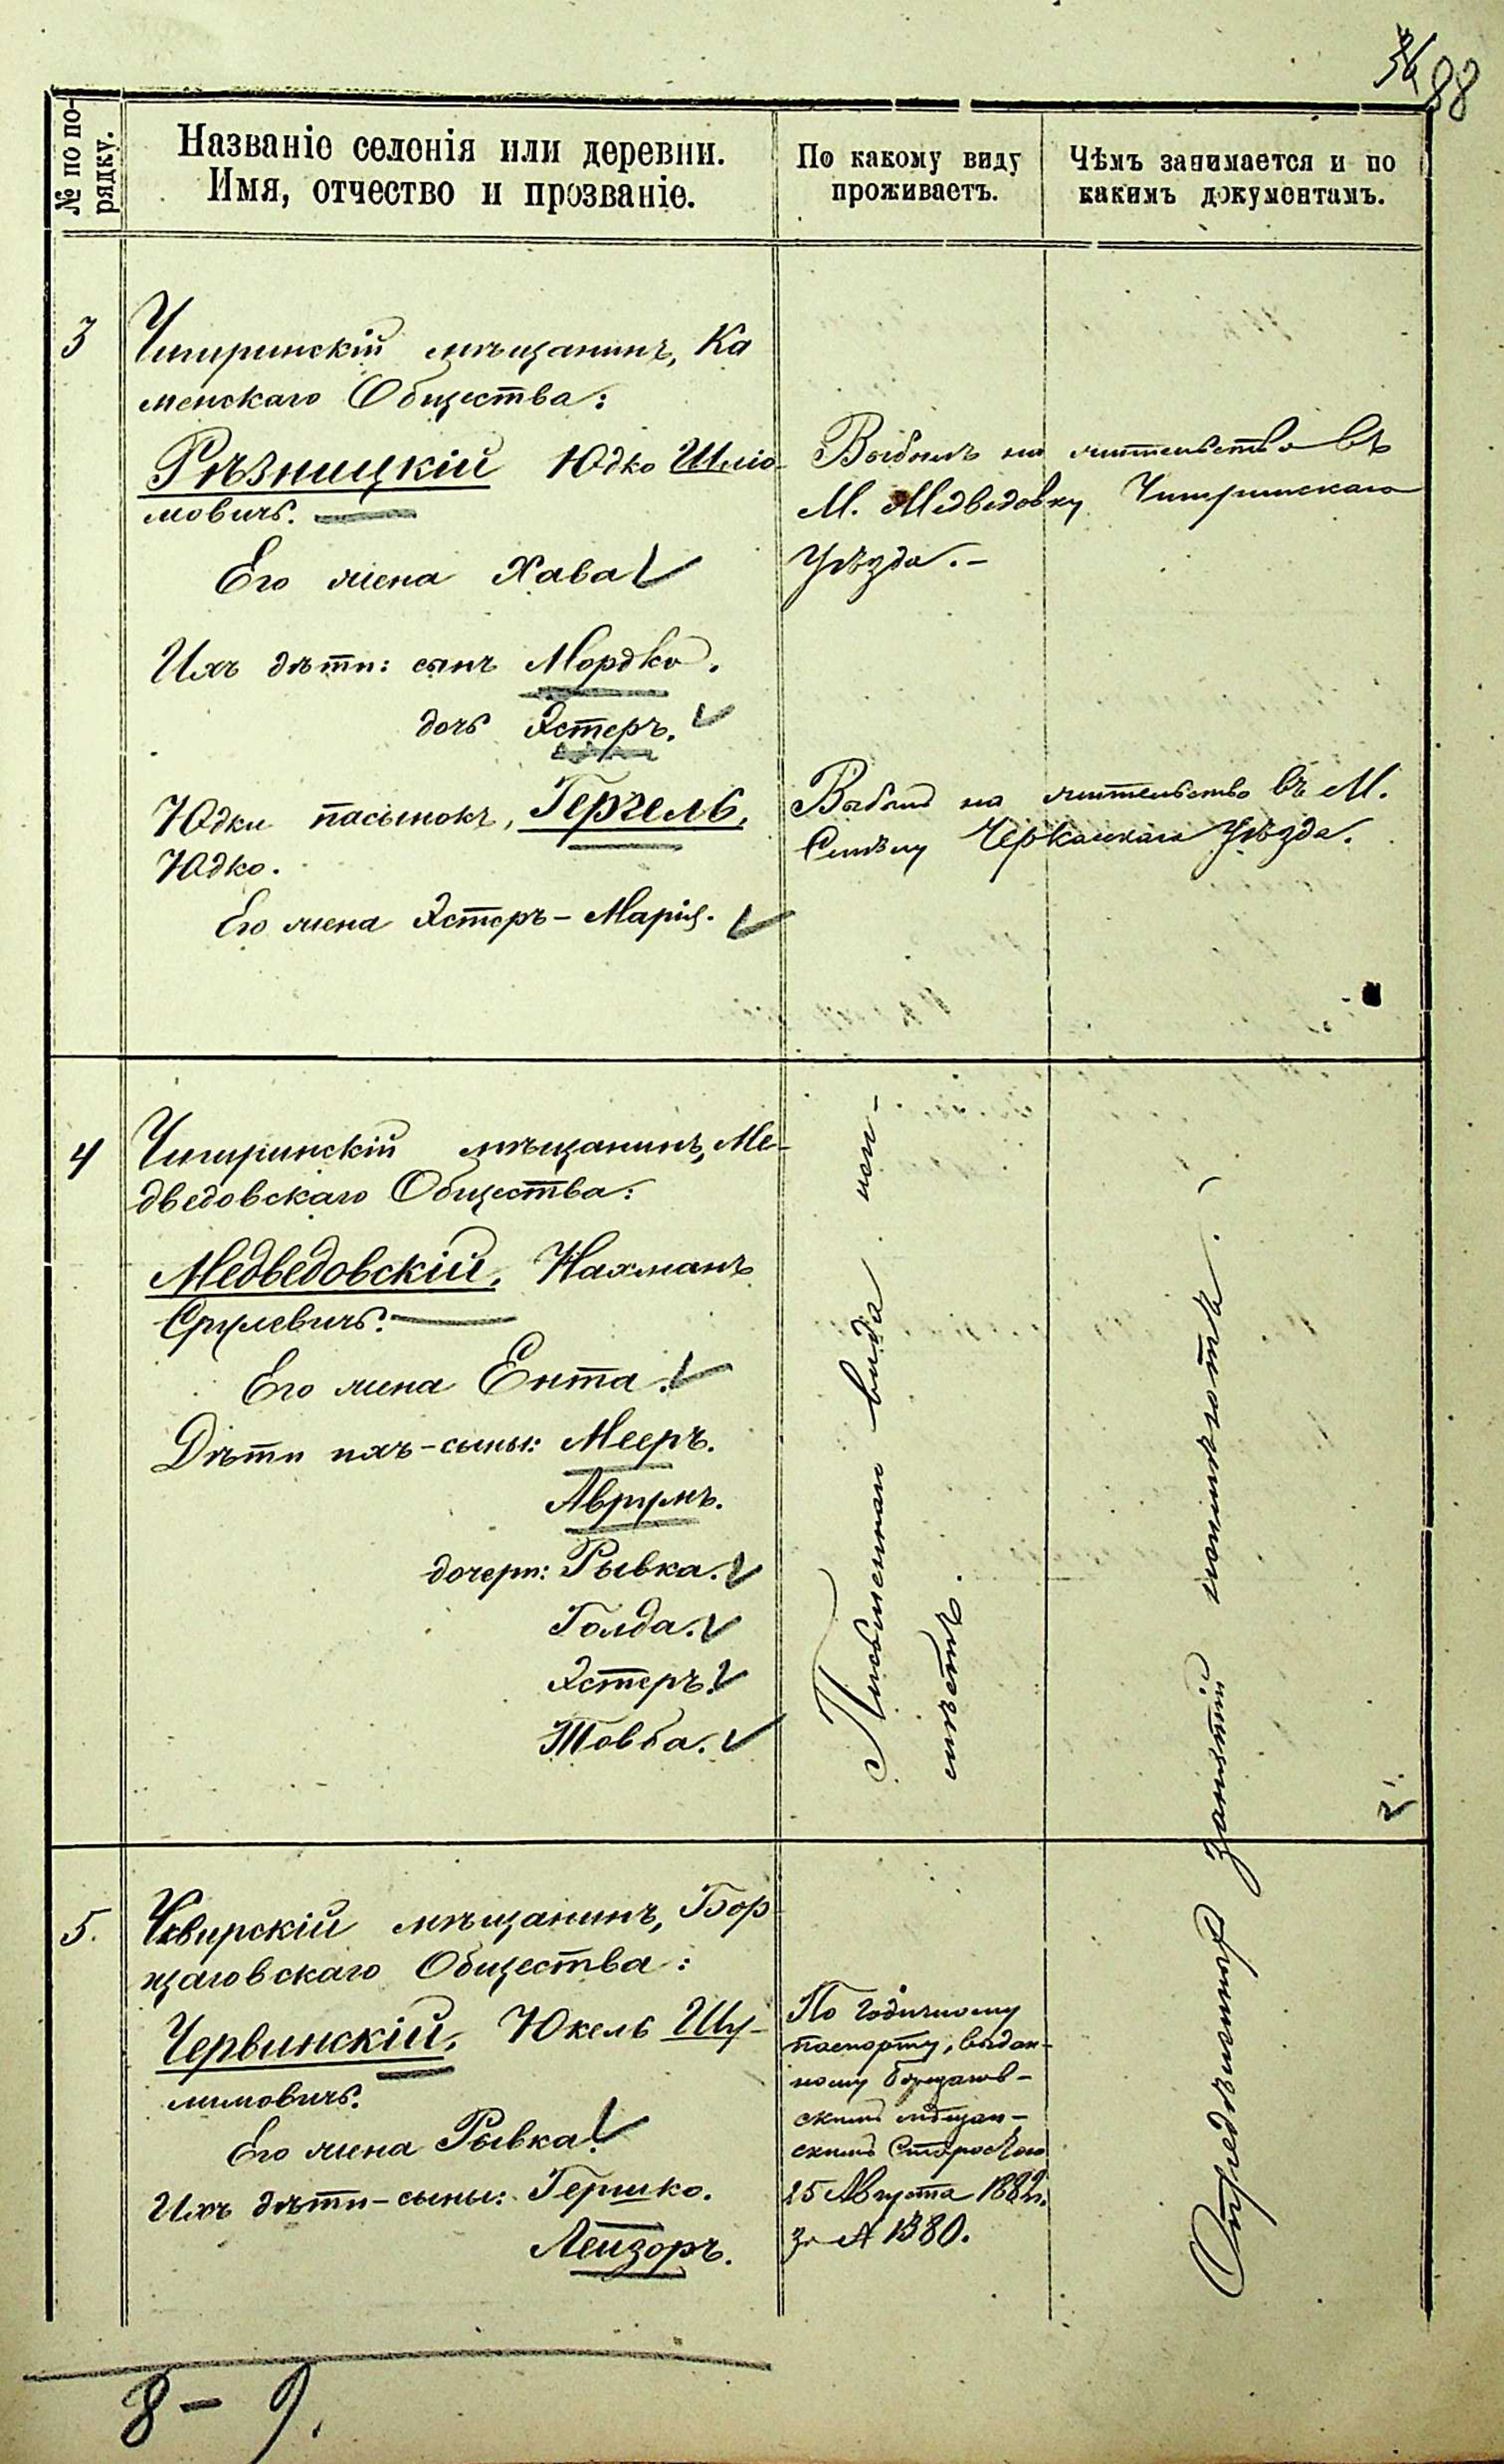 36 88
№ по по-
рядку.
Названіе селенія или деревни.
Имя, отчество и прозваніе.
По какому виду
проживаетъ.
Чѣмъ занимается и по
какимъ документамъ.
3
Чигиринскій мѣщанинъ, Ка
менскаго Общества:
Рѣзницкій Юдко Шліо-
мовичъ.
Его жена Хава
Ихъ дѣти: сынъ Мордко.
дочь Эстеръ.
Юдки пасынокъ, Гергель,
Юдко.
Его жена Эстеръ-Марія.
Выбылъ на жительство въ
М. Медведовку Чигиринскаго
уѣзда.-
Выбылъ на жительство въ М.
Смѣлу Черкасскаго Уѣзда.
4
Чигиринскій мѣщанинъ, Ме-
дведовскаго Общества:
Медведовскій, Нахманъ
Срулевичъ.
Его жена Ента.
Дѣти ихъ-сыны: Мееръ.
Аврумъ.
дочери: Рывка.
Голда.
Эстеръ.
Товба.
Письменнаго вида не-
имѣетъ.
Опредѣленныхъ занятій неимѣютъ.
5.
Сквирскій мѣщанинъ, Бор
щаговскаго Общества:
Червинскій, Юкель Шу-
лимовичъ.
Его жена Рывка.
Ихъ дѣти-сыны: Гершко.
Лейзоръ.
По годичному
паспорту, выдан-
ному Борщагов-
скимъ мѣщан-
скимъ Старостою
25 Августа 1882г.
за № 1380.
8-9.